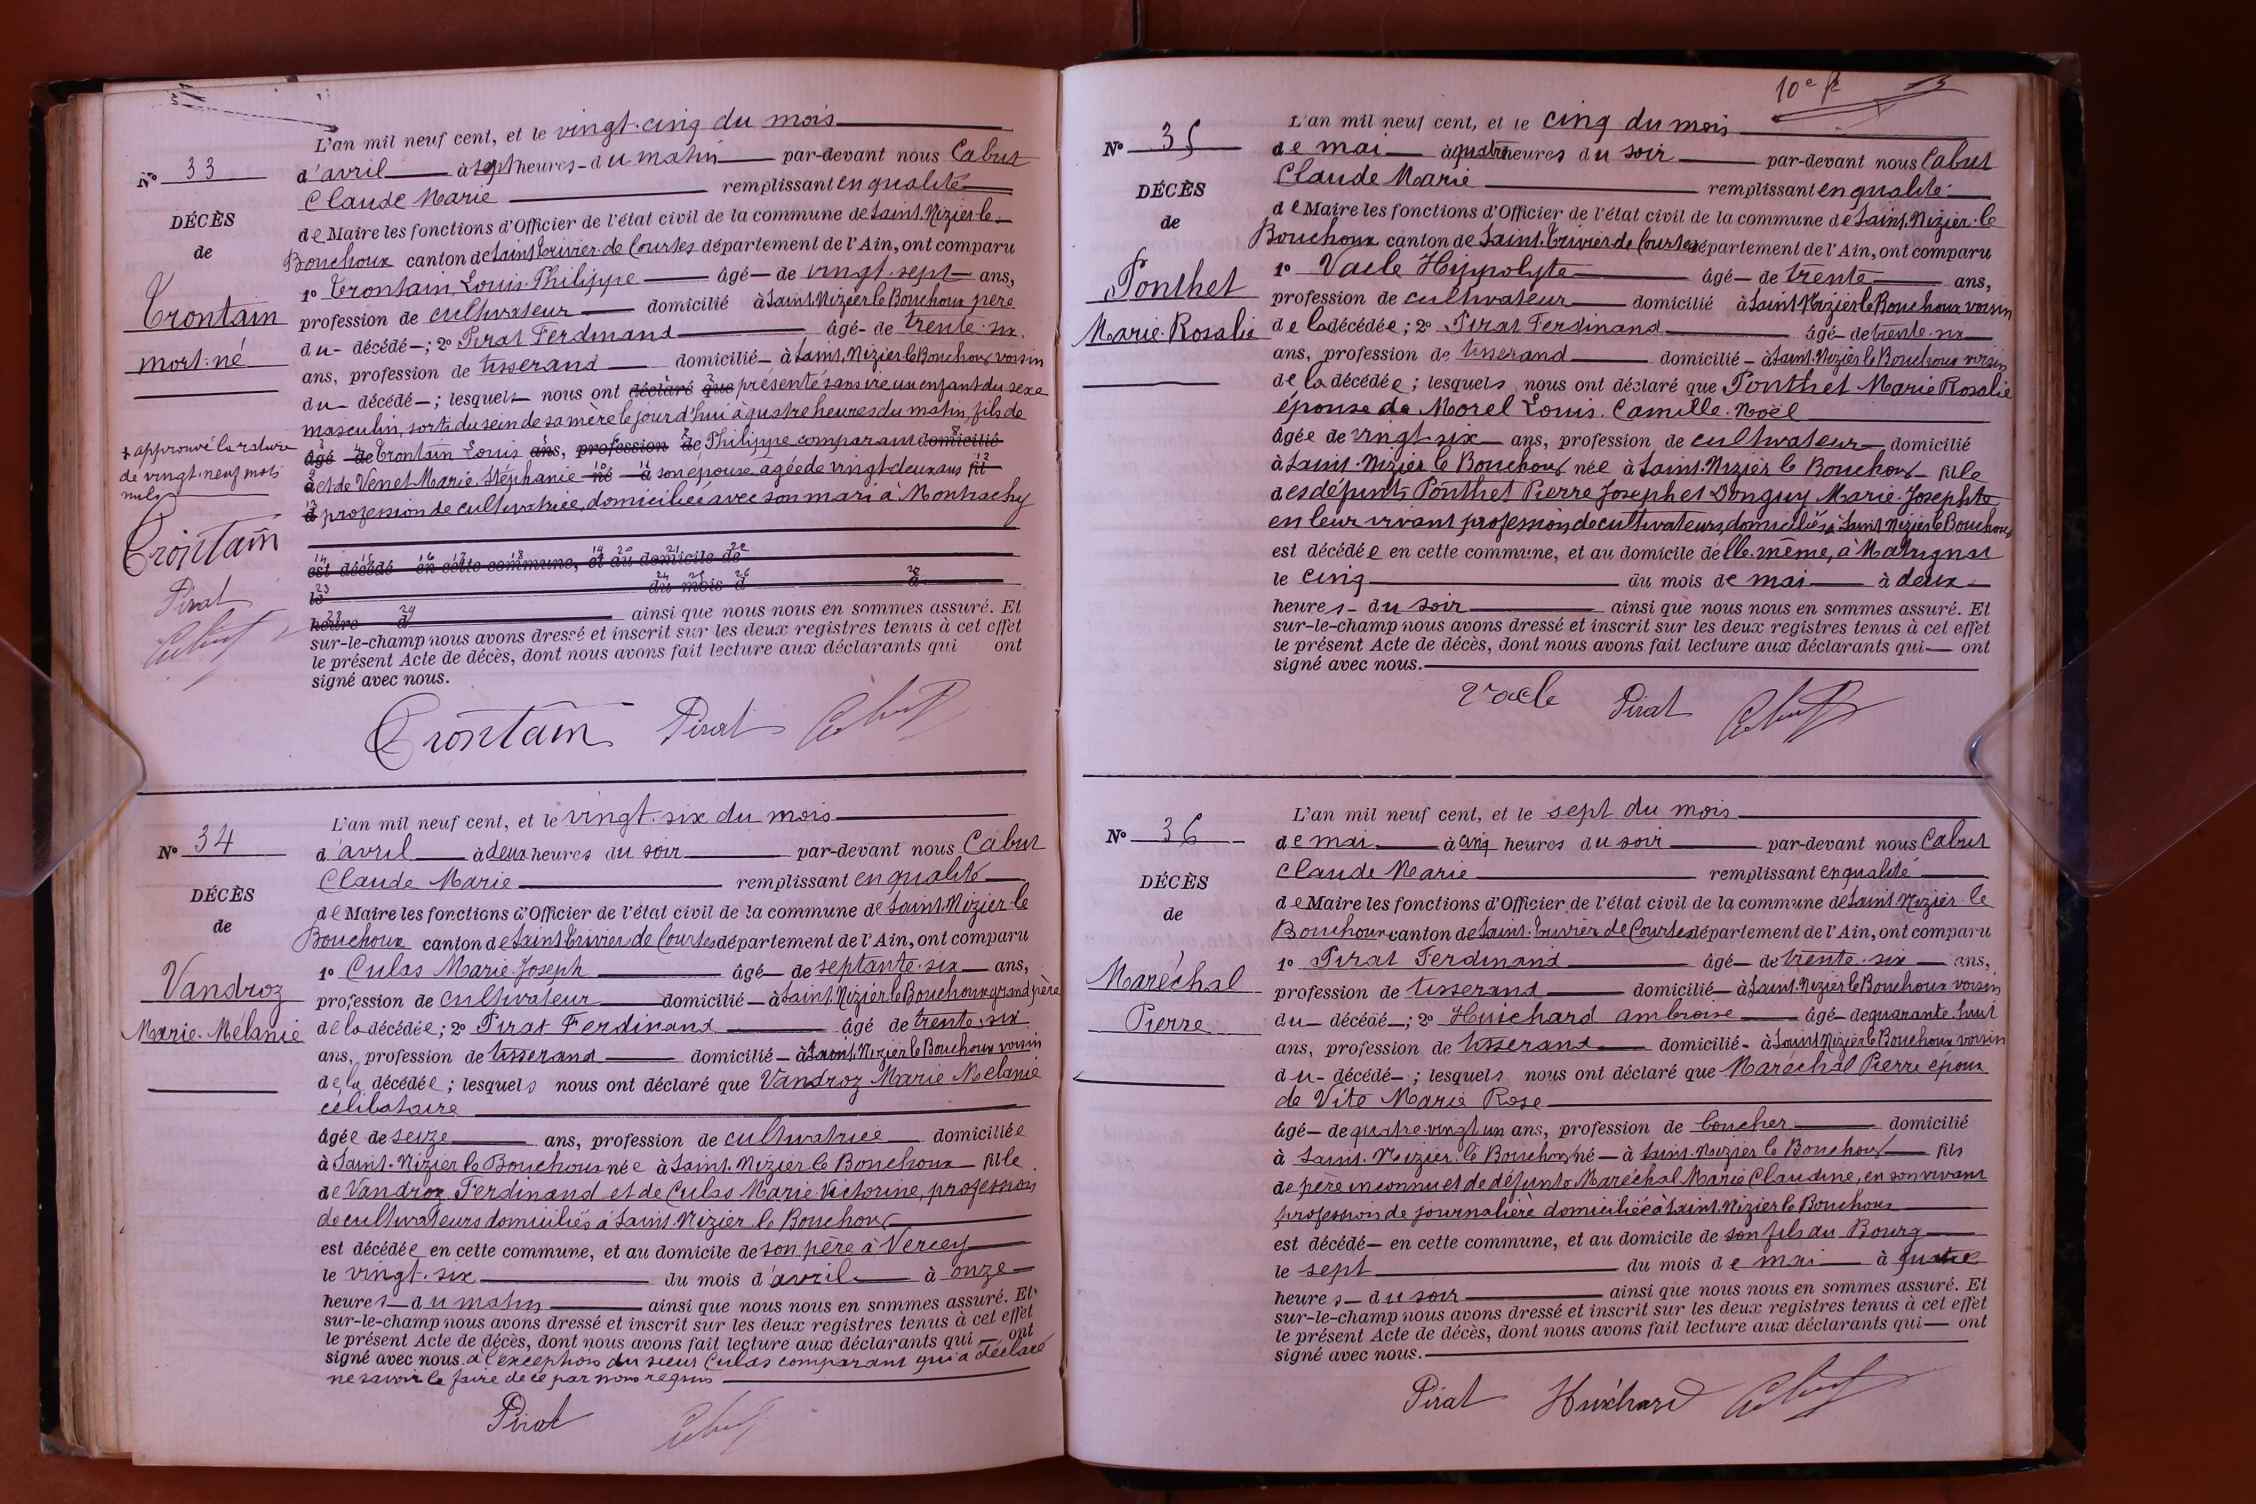 L'an mil neuf cent, et le vingt-cinq du mois
N° 33
d'avril à sept heures du matin par-devant nous Cabut
Claude Marie remplissant en qualité
DÉCÈS
de Maire les fonctions d'Officier de l'état civil de la commune de Saint-Nizier-le-
de
Bouchoux canton de Saint-Trivier-de-Courtes département de l'Ain, ont comparu
1° Trontain Louis Philippe âgé de vingt-sept ans,
Trontain
profession de cultivateur domicilié à Saint Nizier le Bouchoux père
mort-né
du décédé ; 2° Pirat Ferdinand âgé de trente-six
ans, profession de tisserand domicilié à Saint Nizier le Bouchoux voisin
du décédé ; lesquels nous ont déclaré que présenté sans vie un enfant du sexe
masculin, sorti du sein de sa mère le jourd'hui à quatre heures du matin, fils de
+ approuvé la rature
de vingt-neuf mots
nuls
âgé de Trontain Louis ans, profession de Philippe comparant domicilié
à et de Venet Marie Stéphanie né à son épouse agée de vingt-deux ans fil
d profession de cultivatrice, domiciliée avec son mari à Montrachy
Trontain
Pirat
Cabut
est décédé en cette commune, et au domicile de
le du mois d à
heure d ainsi que nous nous en sommes assuré. Et
sur-le-champ nous avons dressé et inscrit sur les deux registres tenus à cet effet
le présent Acte de décès, dont nous avons fait lecture aux déclarants qui ont
signé avec nous.
Trontain Pirat Cabut
L'an mil neuf cent, et le vingt-six du mois
N° 34
d'avril à deux heures du soir par-devant nous Cabut
Claude Marie remplissant en qualité
DÉCÈS
de Maire les fonctions d'Officier de l'état civil de la commune de Saint-Nizier-le
de
Bouchoux canton de Saint-Trivier-de-Courtes département de l'Ain, ont comparu
1° Culas Marie-Joseph âgé de septante-six ans,
Vandroz
profession de cultivateur domicilié à Saint Nizier le Bouchoux grand père
Marie-Mélanie
de la décédée ; 2° Pirat Ferdinand âgé de trente-six
ans, profession de tisserand domicilié à Saint Nizier le Bouchoux voisin
de la décédée ; lesquels nous ont déclaré que Vandroz Marie Melanie
célibataire
âgée de seize ans, profession de cultivatrice domiciliée
à Saint-Nizier le Bouchoux née à Saint-Nizier le Bouchoux fille
de Vandroz Ferdinand et de Culas Marie Victorine, profession
de cultivateurs domiciliés à Saint-Nizier le Bouchoux
est décédée en cette commune, et au domicile de son père à Vercey
le vingt-six du mois d'avril à onze
heures du matin ainsi que nous nous en sommes assuré. Et
sur-le-champ nous avons dressé et inscrit sur les deux registres tenus à cet effet
le présent Acte de décès, dont nous avons fait lecture aux déclarants qui ont
signé avec nous à l'exception du sieur Culas comparant qui a déclaré
ne savoir le faire de ce par nous requis
Pirat Cabut
10e f
L'an mil neuf cent, et le cinq du mois
N° 35
de mai à quatre heures du soir par-devant nous Cabut
Claude Marie remplissant en qualité
DÉCÈS
de Maire les fonctions d'Officier de l'état civil de la commune de Saint-Nizier-le
de
Bouchoux canton de Saint-Trivier-de-Courtes département de l'Ain, ont comparu
1° Vacle Hippolyte âgé de trente ans,
Ponthet
profession de cultivateur domicilié à Saint-Nizier le Bouchoux voisin
Marie-Rosalie
de la décédée ; 2° Pirat Ferdinand âgé de trente-six
ans, profession de tisserand domicilié à Saint-Nizier le Bouchoux voisin
de la décédée ; lesquels nous ont déclaré que Ponthet Marie Rosalie
épouse de Morel Louis-Camille-Noël
âgée de vingt-six ans, profession de cultivateur domicilié
à Saint-Nizier le Bouchoux née à Saint-Nizier le Bouchoux fille
des défunts Ponthet Pierre Joseph et Donguy Marie-Josephte
en leur vivant profession de cultivateurs, domiciliés à Saint Nizier le Bouchoux
est décédée en cette commune, et au domicile de elle-même, à Matignat
le cinq du mois de mai à deux
heures du soir ainsi que nous nous en sommes assuré. Et
sur-le-champ nous avons dressé et inscrit sur les deux registres tenus à cet effet
le présent Acte de décès, dont nous avons fait lecture aux déclarants qui ont
signé avec nous.
Vacle Pirat Cabut
L'an mil neuf cent, et le sept du mois
N° 36
de mai à cinq heures du soir par-devant nous Cabut
Claude Marie remplissant en qualité
DÉCÈS
de Maire les fonctions d'Officier de l'état civil de la commune de Saint Nizier-le
de
Bouchoux canton de Saint-Trivier de Courtes département de l'Ain, ont comparu
1° Pirat Ferdinand âgé de trente-six ans,
Maréchal
profession de tisserand domicilié à Saint-Nizier le Bouchoux voisin
Pierre
du décédé ; 2° Huichard ambroise âgé de quarante-huit
ans, profession de tisserand domicilié à Saint Nizier le Bouchoux voisin
du décédé ; lesquels nous ont déclaré que Maréchal Pierre époux
de Vite Marie Rose
âgé de quatre-vingt un ans, profession de boucher domicilié
à Saint-Nizier-le Bouchoux né à Saint-Nizier le Bouchoux fils
de père inconnu et de défunte Maréchal Marie Claudine, en son vivant
profession de journalière domiciliée à Saint-Nizier le Bouchoux
est décédé en cette commune, et au domicile de son fils au Bourg
le sept du mois de mai à quatre
heures du soir ainsi que nous nous en sommes assuré. Et
sur-le-champ nous avons dressé et inscrit sur les deux registres tenus à cet effet
le présent Acte de décès, dont nous avons fait lecture aux déclarants qui ont
signé avec nous.
Pirat Huichard Cabut